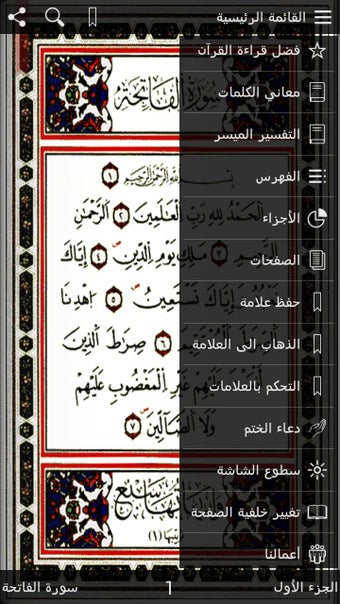 القائمة الرئيسية
فضل قراءة القرآن
معاني الكلمات
التفسير الميسر
الفهرس
الأجزاء
الصفحات
حفظ علامة
الذهاب الى العلامة
التحكم بالعلامات
دعاء الختم
سطوع الشاشة
تغيير خلفية الصفحة
أعمالنا
سورة الفاتحة
بسم الله الرحمن الرحيم ١
الحمد لله رب العلمين ٢ الرحمن
الرحيم ٣ ملك يوم الدين ٤ إياك
نعبد وإياك نستعين ٥ اهدنا
الصرط المستقيم ٦ صرط الذين
أنعمت عليهم غير المغضوب عليهم
ولا الضالين ٧
وآياتها سبع
الجزء الأول
1
سورة الفاتحة